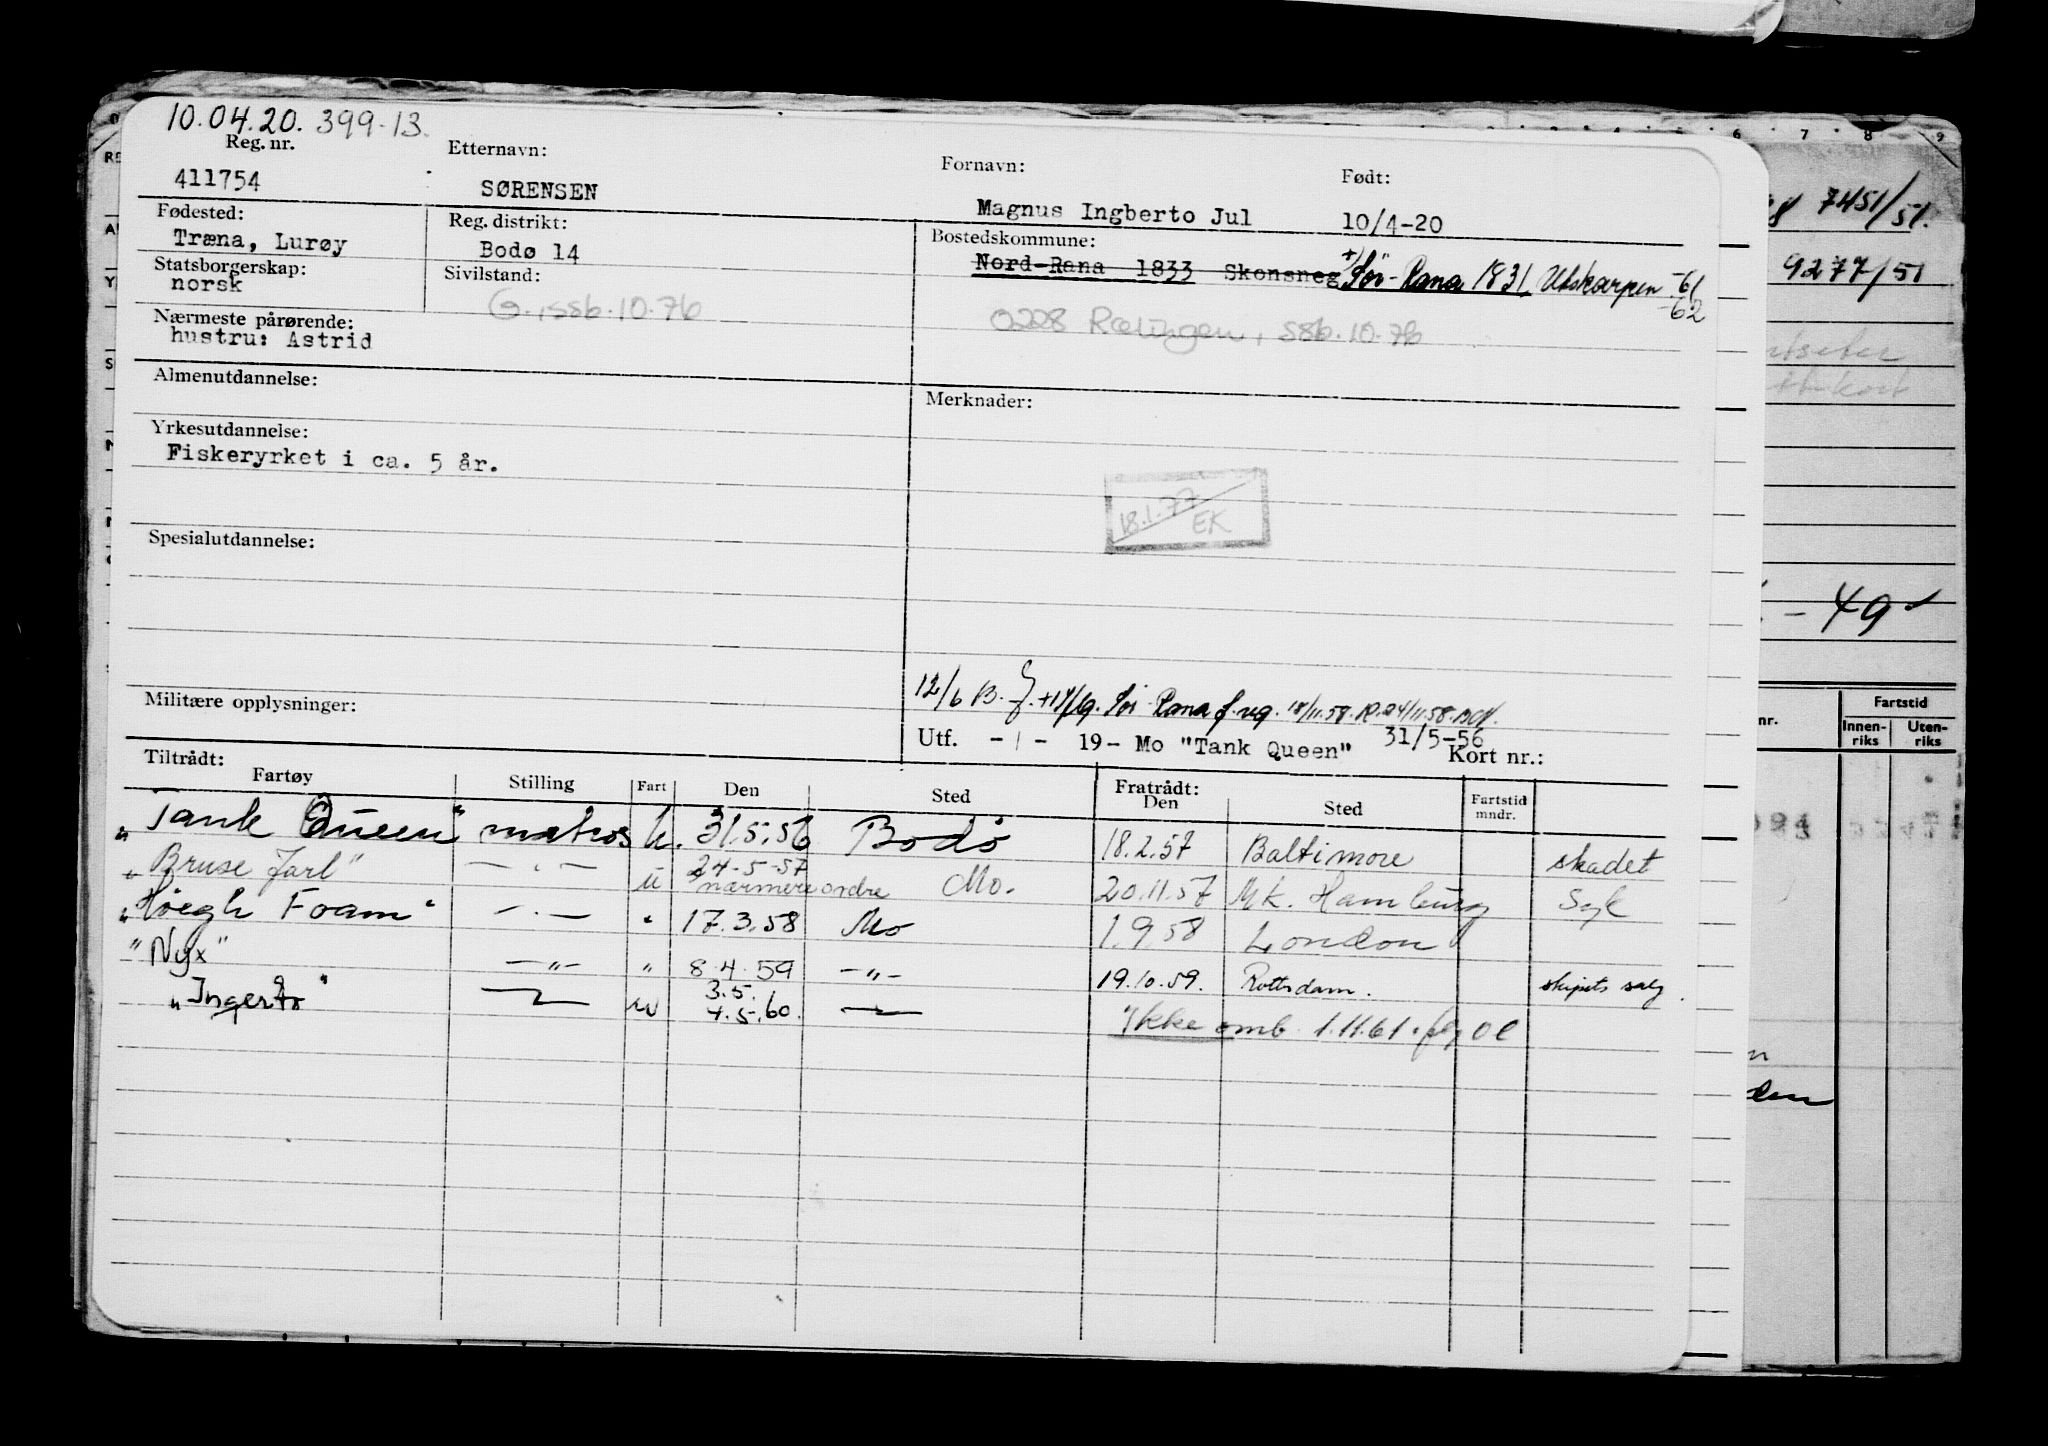 10.04.20. 399-13.
Reg. nr. Etternavn: Fornavn: Født:
411754 SØRENSEN Magnus Ingberto Jul 10/4-20
Fødested: Reg. distrikt: Bostedskommune:
Træna, Lurøy Bodø 14 Nord-Rana 1833 Skonsneg Sør-Rana 1831 Utskarpen -61
-62
Statsborgerskap: Sivilstand:
norsk G. ssb.10.76 0228 Rælingen, ssb.10.76
Nærmeste pårørende:
hustru: Astrid
Almenutdannelse: Merknader:
Yrkesutdannelse:
Fiskeryrket i ca. 5 år.
18.1.77
EK
Spesialutdannelse:
12/6 B. Sør-Rana f. reg. 18/11.58. 24/11.58.
Militære opplysninger:
Utf. -1- 19- Mo "Tank Queen" 31/5-56 Kort nr.:
Tiltrådt: Fratrådt:
Fartøy Stilling Fart Den Sted Den Sted Fartstid mndr.
"Tank Queen" matros U. 31.5.56 Bodø 18.2.57 Baltimore skadet
"Bruse Jarl" — " — U 24-5-57 nærmere ordre Mo. 20.11.57 Mk. Hamburg Syk
"Höegh Foam" — " — " 17.3.58 Mo 1.9.58 London
"Nyx" — " — " 8.4.59 — " — 19.10.59. Rottsdam. skipets salg.
"Ingerto" 3.5.
4.5.60.
Ikke omb. 1.11.61.
6 7 8 9
7451/51.
9277/51
- 49
nr. Fartstid
Innenriks Utenriks